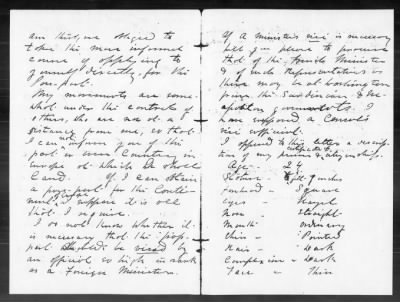 am thus, we obliged to
take the more informal
course of applying to
yourself directly for the
Passport.
My movements are some-
what under the controls of
others, who are not at a
distance from me, so that
I can not inform you of the
port or even Country in
Europe at which I shall
land. If I can obtain
a passport for the Conti-
nent I suppose it is all
that I require.
I do not know whether it
is necessary that the pass-
port should be vised by
an official so high in rank
as a Foreign Minister.
If a Minister's visé is necessary
will you please to procure
that of the French Minister
& of such Representatives as
there may be at Washington
from the Sardinian & Nea-
politan governments. I
have supposed a Consul's
visé sufficient.
I append to this letter a descrip-
tion of my person & citizenship.
Age - 24
Stature - 5 ft 9 inches
Forehead - Square
Eyes - Hazel
Nose - Straight
Mouth - ordinary
Chin - Pointed
Hair - Dark
Complexion - Dark
Face - Thin